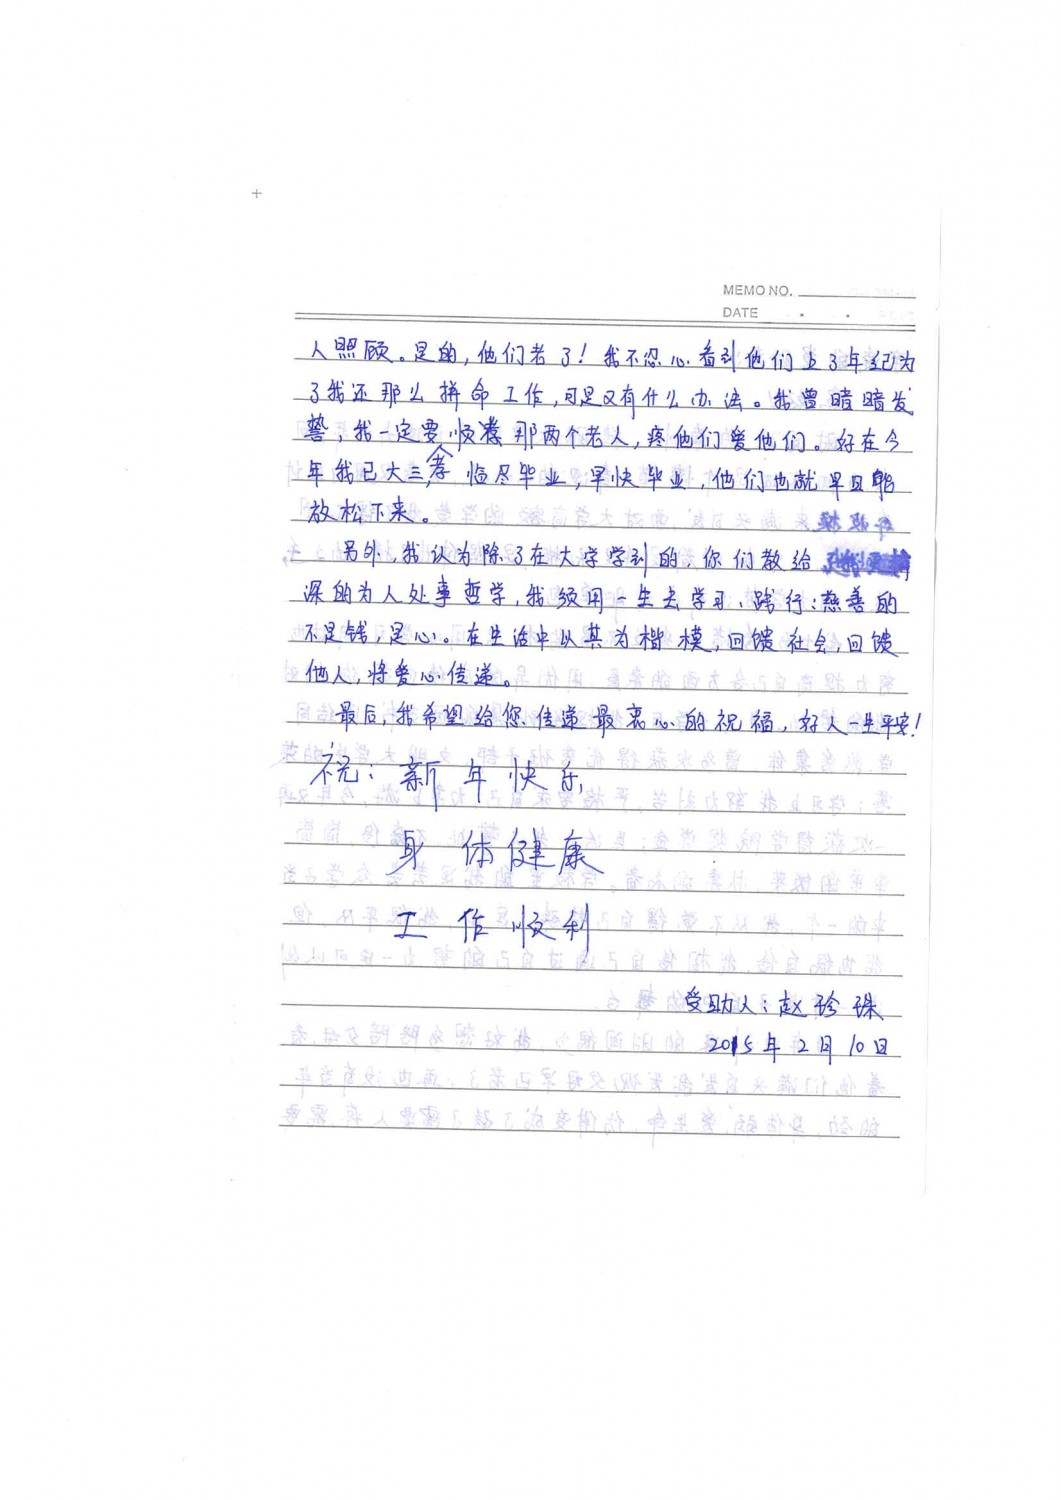 MEMO NO.
DATE
人照顾。是的,他们老了!我不忍心看到他们上了年纪为
了我还那么拼命工作,可是又有什么办法。我曾暗暗发
誓,我一定要孝顺那两个老人,疼他们爱他们。好在今
年我已大三,临尽毕业,早快毕业,他们也就早日能
放松下来。
另外,我认为除了在大学学到的,你们教给
深的为人处事哲学,我须用一生去学习、践行:慈善的
不是钱,是心。在生活中以其为楷模,回馈社会,回馈
他人,将爱心传递。
最后,我希望给您传递最衷心的祝福,好人一生平安!
祝:新年快乐
身体健康
工作顺利
受助人:赵珍珠
2015年2月10日